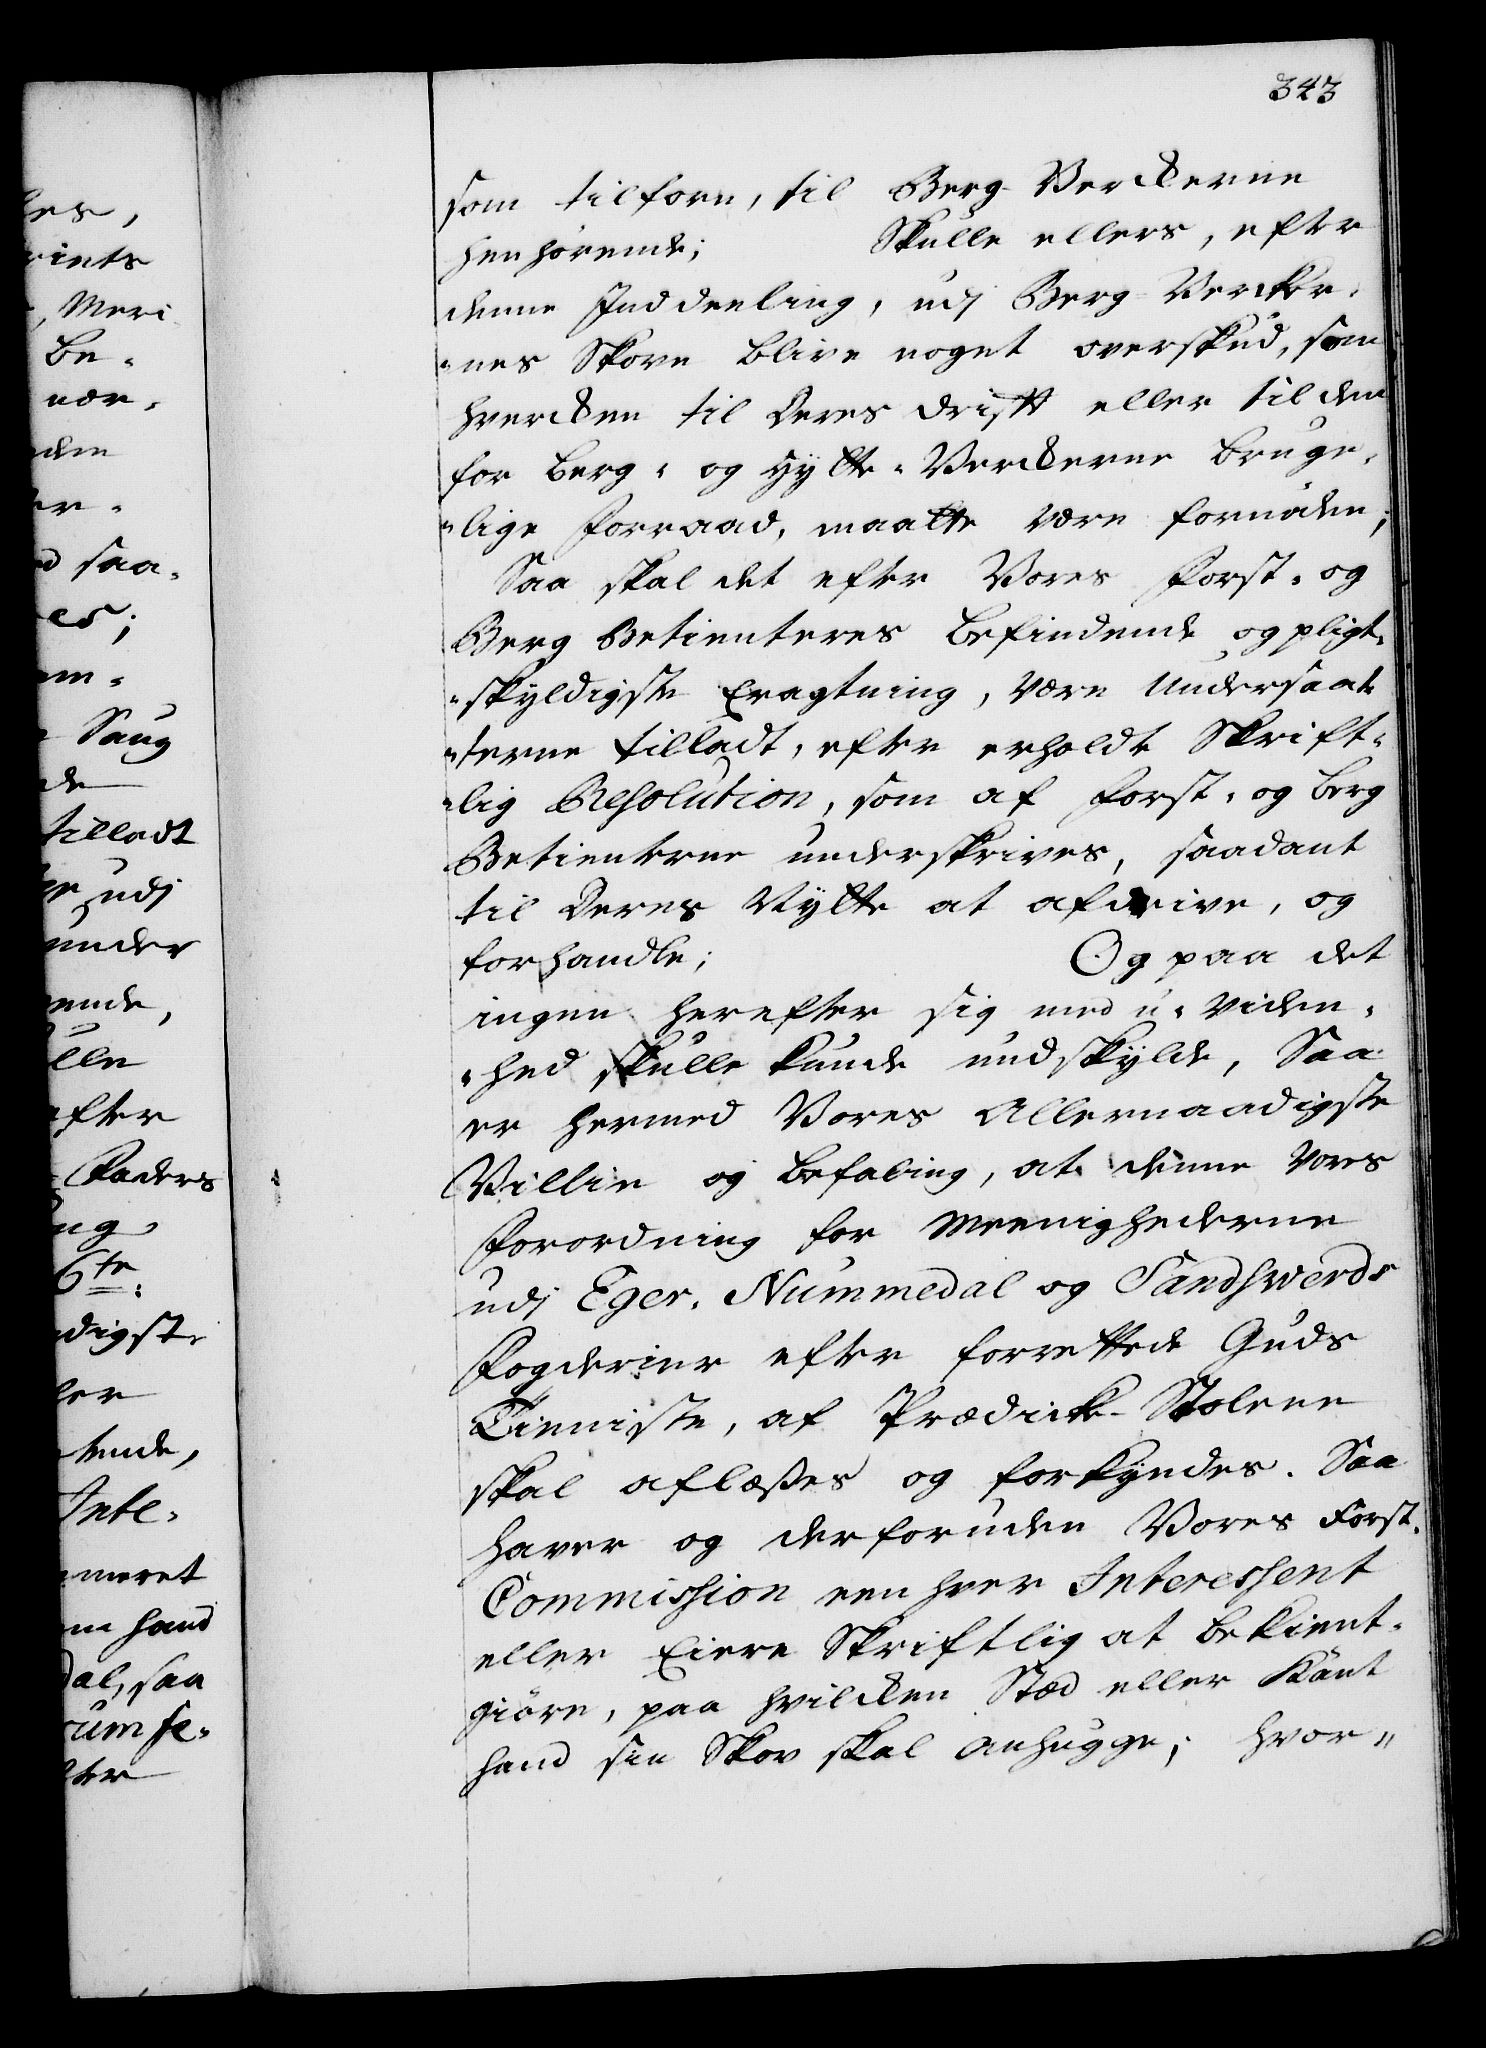 343
som tilforn, til Berg-Verckerne
henhörende; Skulle ellers, efter
denne Inddeeling, udj Berg-Vercker-
-nes Skove blive noget overskud, som
hvercken til Deres Drift eller til den
for Berg- og Hytte-Verckerne bruge-
-lige Forraad, maatte være fornöden;
Saa skal det efter Vores Forst- og
Berg Betienteres befindende og pligt-
-skyldigste Eragtning, være Undersaat-
-terne tilladt, efter erholdte Skrift-
-lig Resolution, som af Forst- og Berg
Betienterne underskrives, saadant
til Deres Nytte at afdrive, og
forhandle; Og paa det
ingen herefter sig med u-viden-
-hed skulle kunde undskylde, Saa
er hermed Vores Allernaadigste
Villie og befaling, at denne Vores
Forordning for Meenighederne
udj Eger, Nummedal og Sandsverds
Fogderier efter forrettede Guds
Tieniste, af Prædick-Stolene
skal aflæses og forkyndes. Saa
haver og derforuden Vores Forst-
Commission een hver Interessent
eller Eiere Skriftlig at bekient-
giöre, paa hvilcken Stæd eller Kant
hand sin Skov skal anhugge; hvor-
rints
, Meri
be-
nær-
saa-
Saug
tilladt
udj
under
efter
Faders
6te
digste
Inte-
hand
dal, saa